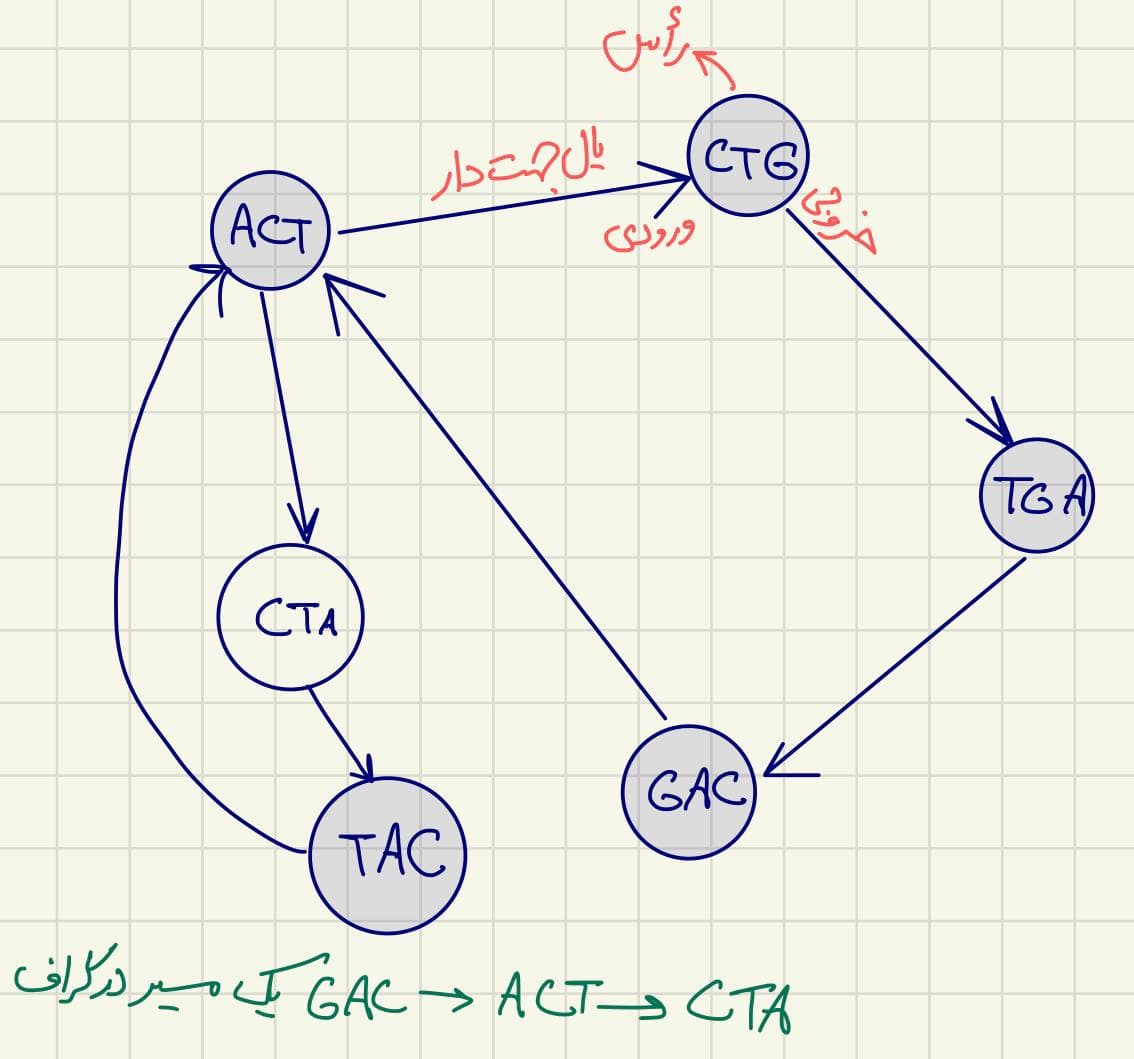 رأس
CTG
یال جهت‌دار
ACT
ورودی
خروجی
TGA
CTA
GAC
TAC
GAC → ACT → CTA یک مسیر در گراف